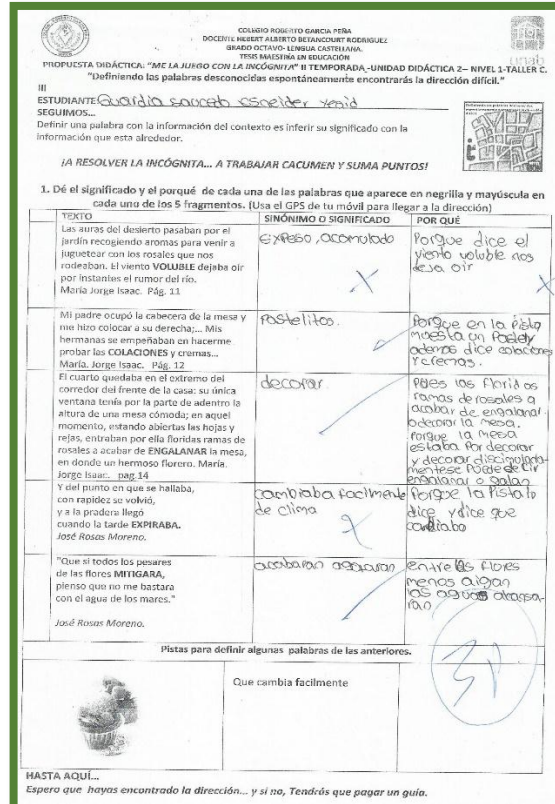 COLEGIO ROBERTO GARCIA PEÑA
DOCENTE HEBERT ALBERTO BETANCOURT RODRIGUEZ
GRADO OCTAVO- LENGUA CASTELLANA.
TESIS MAESTRÍA EN EDUCACIÓN
unab
PROPUESTA DIDÁCTICA: "ME LA JUEGO CON LA INCÓGNITA" II TEMPORADA_-UNIDAD DIDÁCTICA 2– NIVEL 1-TALLER C.
"Definiendo las palabras desconocidas espontáneamente encontrarás la dirección difícil."
III
ESTUDIANTE Guardia esneider yesid
SEGUIMOS...
Definir una palabra con la información del contexto es inferir su significado con la
información que esta alrededor.
¡A RESOLVER LA INCÓGNITA... A TRABAJAR CACUMEN Y SUMA PUNTOS!
1. Dé el significado y el porqué de cada una de las palabras que aparece en negrilla y mayúscula en
cada uno de los 5 fragmentos. (Usa el GPS de tu móvil para llegar a la dirección)
TEXTO SINÓNIMO O SIGNIFICADO POR QUÉ
Las auras del desierto pasaban por el
jardín recogiendo aromas para venir a
juguetear con los rosales que nos
rodeaban. El viento VOLUBLE dejaba oír
por instantes el rumor del río.
María Jorge Isaac. Pág. 11
expeso, acomulado
Porque dice el
viento voluble nos
deja oir
Mi padre ocupó la cabecera de la mesa y
me hizo colocar a su derecha;... Mis
hermanas se empeñaban en hacerme
probar las COLACIONES y cremas...
María. Jorge Isaac. Pág. 12
Pastelitos.
Porque en la Pista
muesta un Pastel y
ademas dice colaciones
y cremas.
El cuarto quedaba en el extremo del
corredor del frente de la casa: su única
ventana tenía por la parte de adentro la
altura de una mesa cómoda; en aquel
momento, estando abiertas las hojas y
rejas, entraban por ella floridas ramas de
rosales a acabar de ENGALANAR la mesa,
en donde un hermoso florero. María.
Jorge Isaac. pag.14
decorar
Pues las floridas
ramas de rosales a
acabar de engalanar
o decorar la mesa.
Porque la mesa
estaba Por decorar
y decorar
engalanar o galan
Y del punto en que se hallaba,
con rapidez se volvió,
y a la pradera llegó
cuando la tarde EXPIRABA.
José Rosas Moreno.
cambiaba facilmente
de clima
Porque la Pista lo
dice y dice que
"Que si todos los pesares
de las flores MITIGARA,
pienso que no me bastara
con el agua de los mares."
José Rosas Moreno.
acabaran
entre las flores
menos aigan
las aguas
Pistas para definir algunas palabras de las anteriores.
3P
Que cambia facilmente
HASTA AQUÍ...
Espero que hayas encontrado la dirección... y si no, Tendrás que pagar un guía.